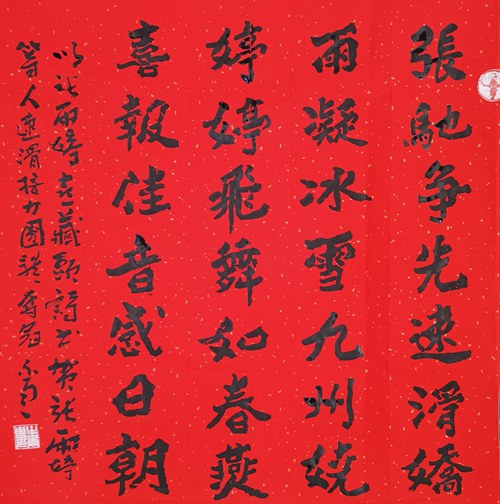 張馳争先速滑嬌
雨凝冰雪九州娆
婷婷飛舞如春燕
喜報佳音感日朝
以张雨婷喜藏頭詩贊张雨婷
等人速滑接力團體奪冠